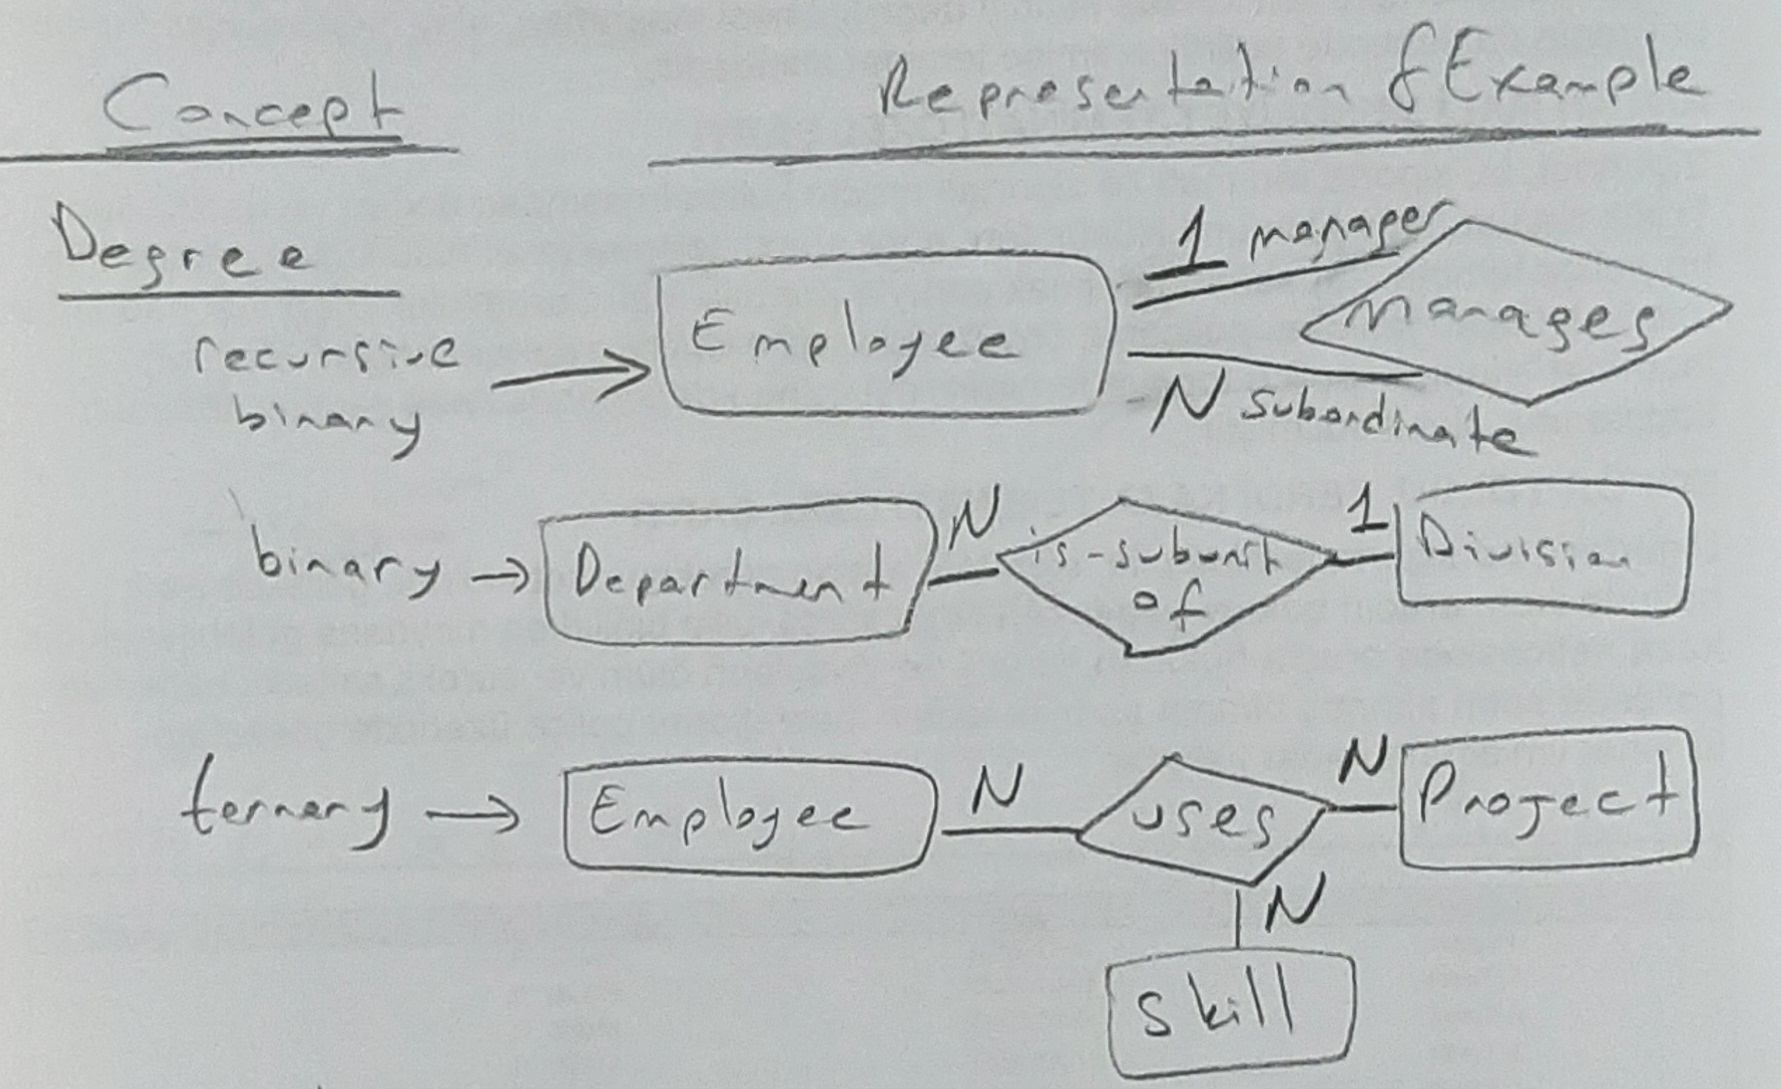 Concept
Representation & Example
Degree
recursive
binary
Employee
1 manager
manages
N subordinate
binary → Department N is-subunit
of 1 Division
ternary → Employee N uses N Project
N
Skill